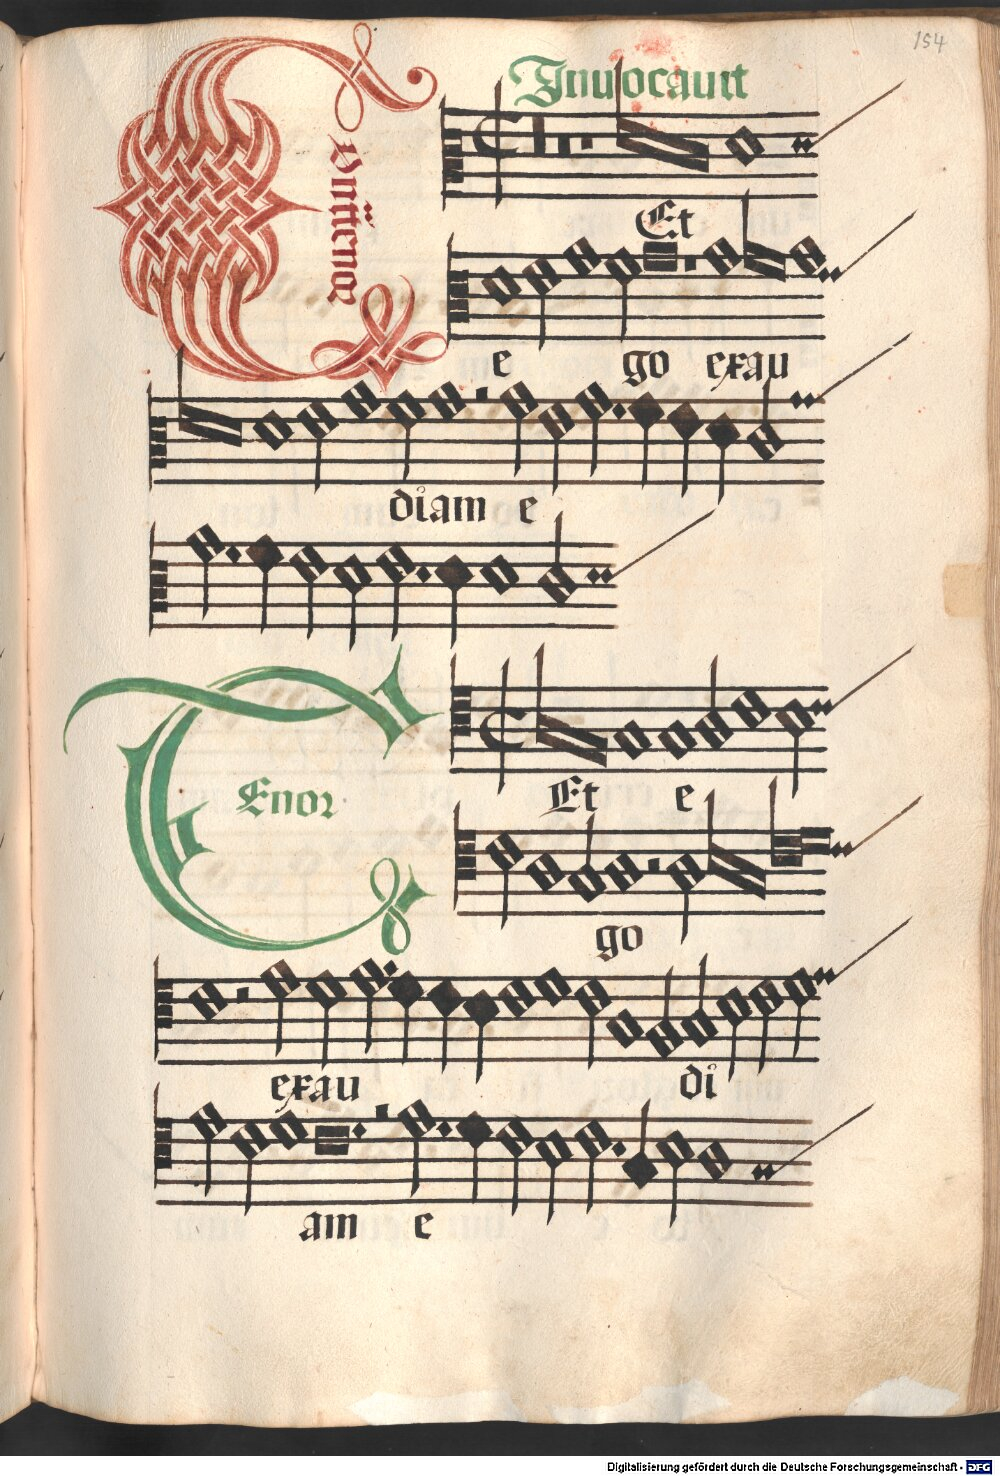 154
Inuocauit
Et
e go exau
diam e
Tenor
Et e
go
exau di
am e
Digitalisierung gefördert durch die Deutsche Forschungsgemeinschaft - DFG